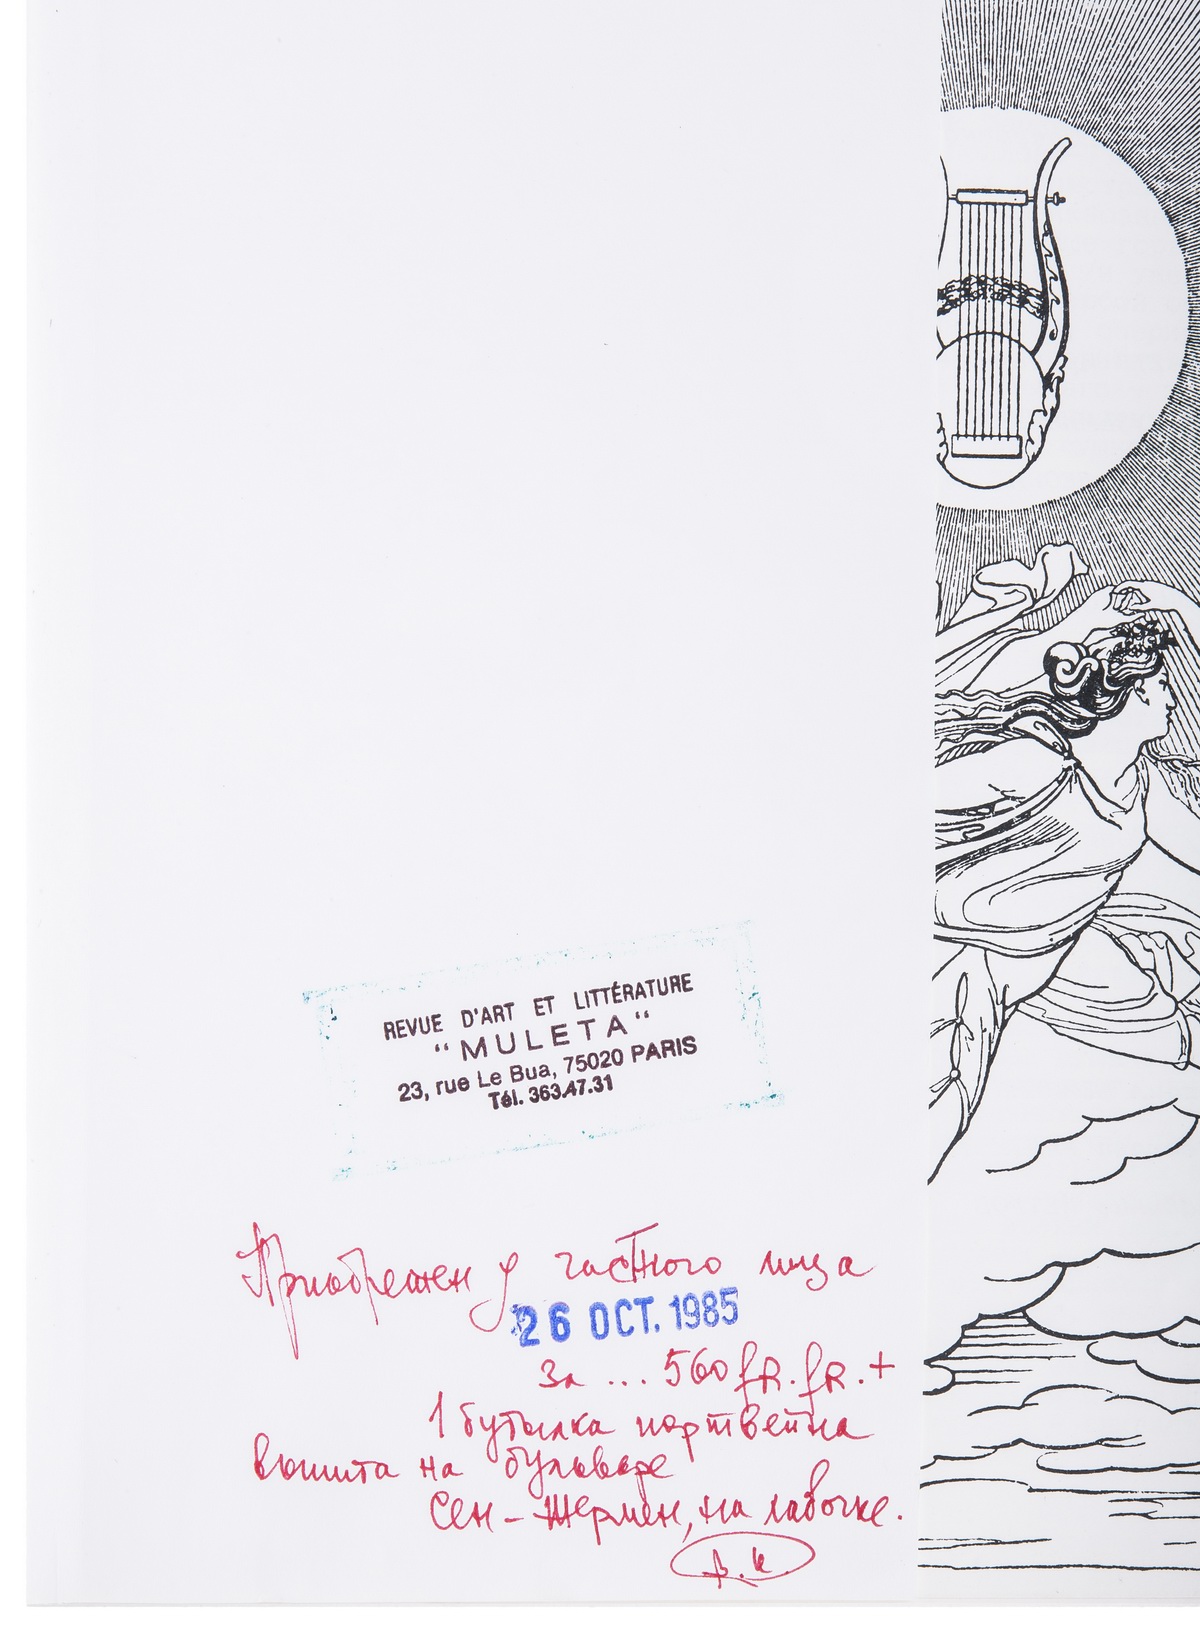 REVUE D'ART ET LITTÉRATURE
"MULETA"
23, rue Le Bua, 75020 PARIS
Tél. 363.47.31
Приобретен у частного лица
26 OCT. 1985
за ... 560 fR. fR. +
1 бутылка портвейна
выпита на бульваре
Сен-Жермен, на лавочке.
В. К.